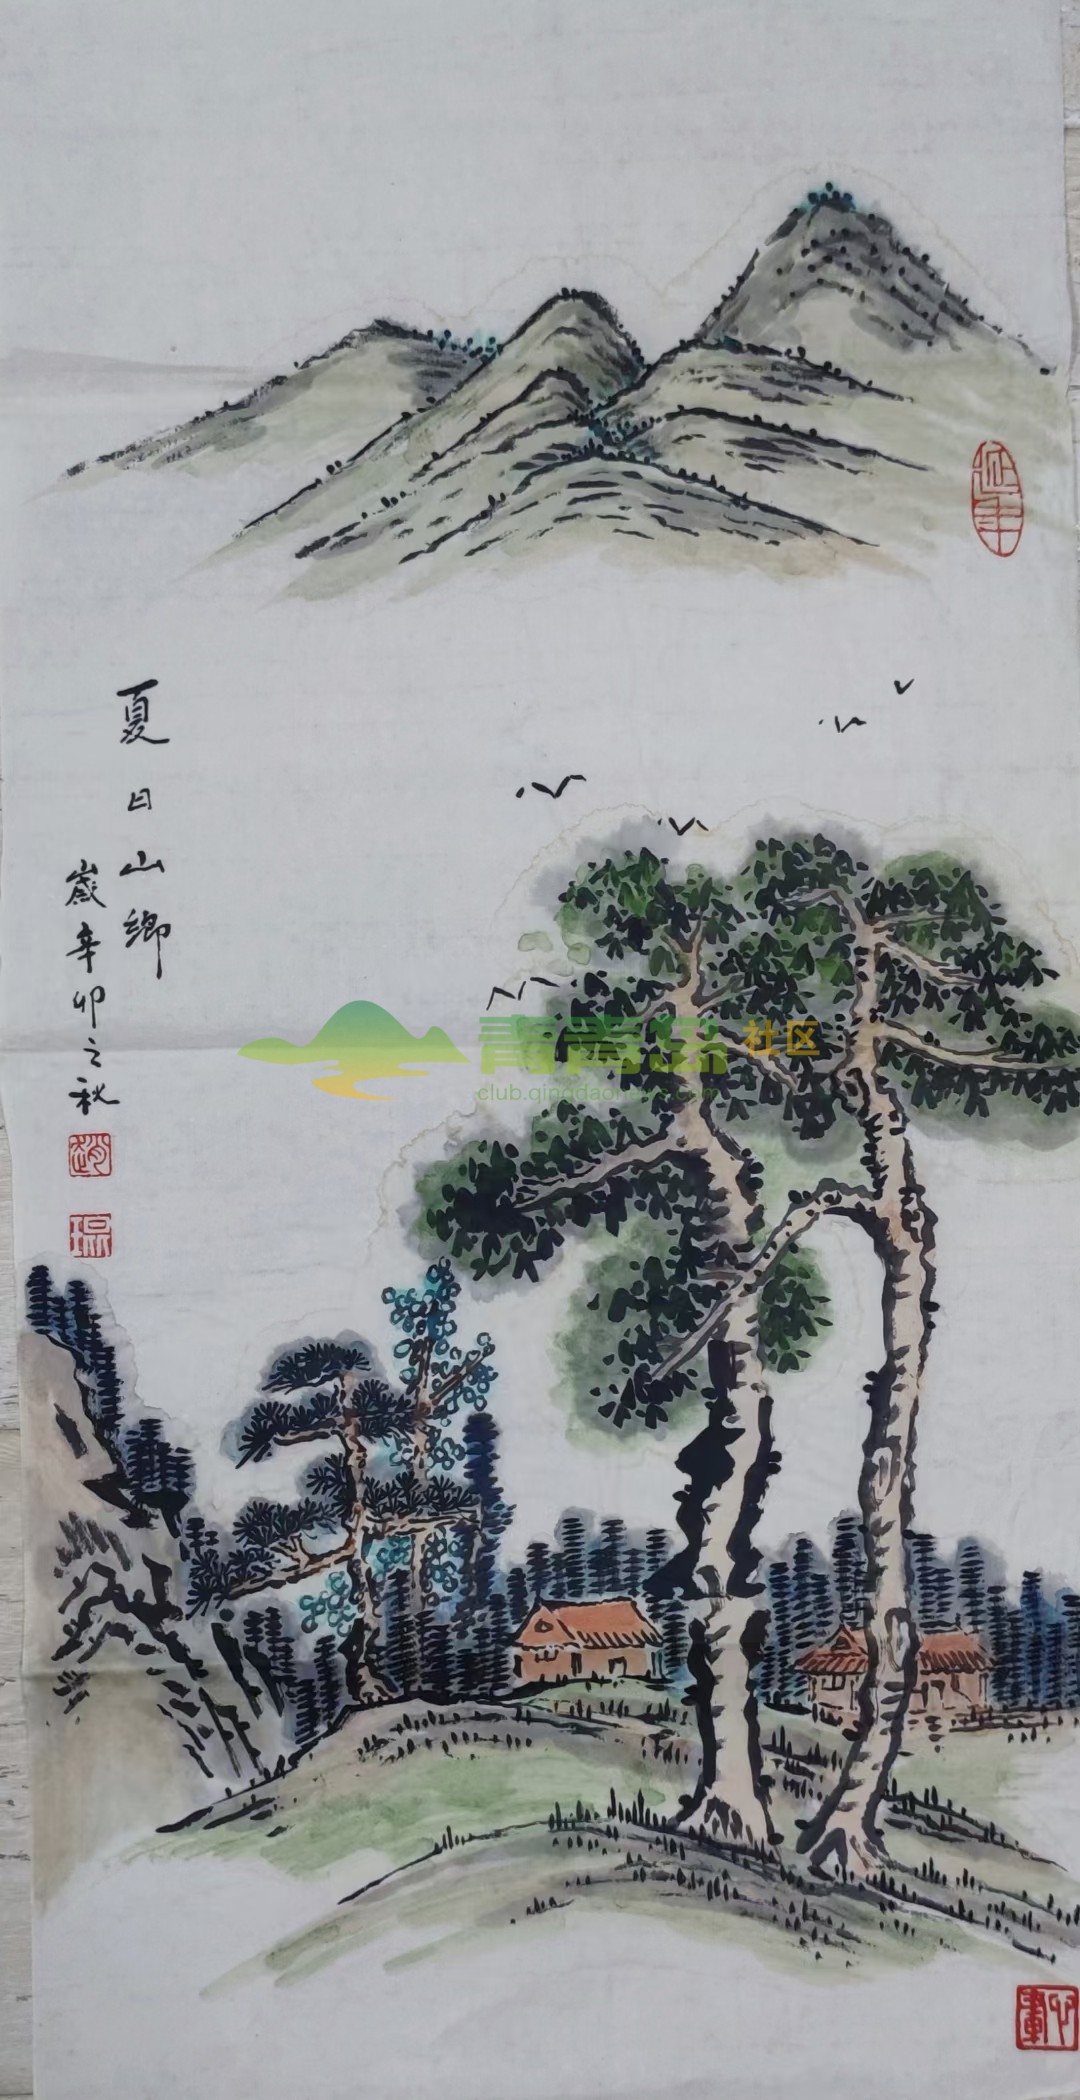 夏日山鄉
歲辛卯之秋
趙
琨
延年
心畫
青青岛社区
club.qingdaonews.com